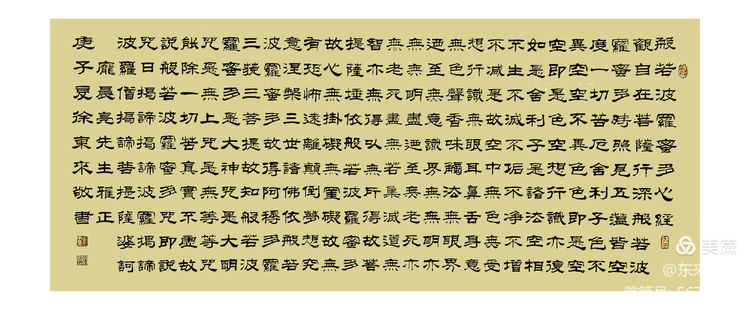 般若波羅蜜多心經
觀自在菩薩行深般若波
羅蜜多時照見五蘊皆空
度一切苦厄舍利子色不
異空空不異色色即是空
空即是色受想行識亦復
如是舍利子是諸法空相
不生不滅不垢不淨不增
不減是故空中無色無受
想行識無眼耳鼻舌身意
無色聲香味觸法無眼界
迺至無意識界無無明亦
無無明盡迺至無老死亦
無老死盡無苦集滅道無
智亦無得以無所得故菩
提薩埵依般若波羅蜜多
故心無掛礙無罣礙故無
有恐怖遠離顛倒夢想究
竟涅槃三世諸佛依般若
波羅蜜多故得阿耨多羅
三藐三菩提故知般若波
羅蜜多是大神咒是大明
咒是無上咒是無等等咒
能除一切苦真實不虛故
説般若波羅蜜多咒即説
咒曰揭諦揭諦波羅揭諦
波羅僧揭諦菩提薩婆訶
龐晨亮先生雅正
庚子夏徐東來敬書
美篇
@东来